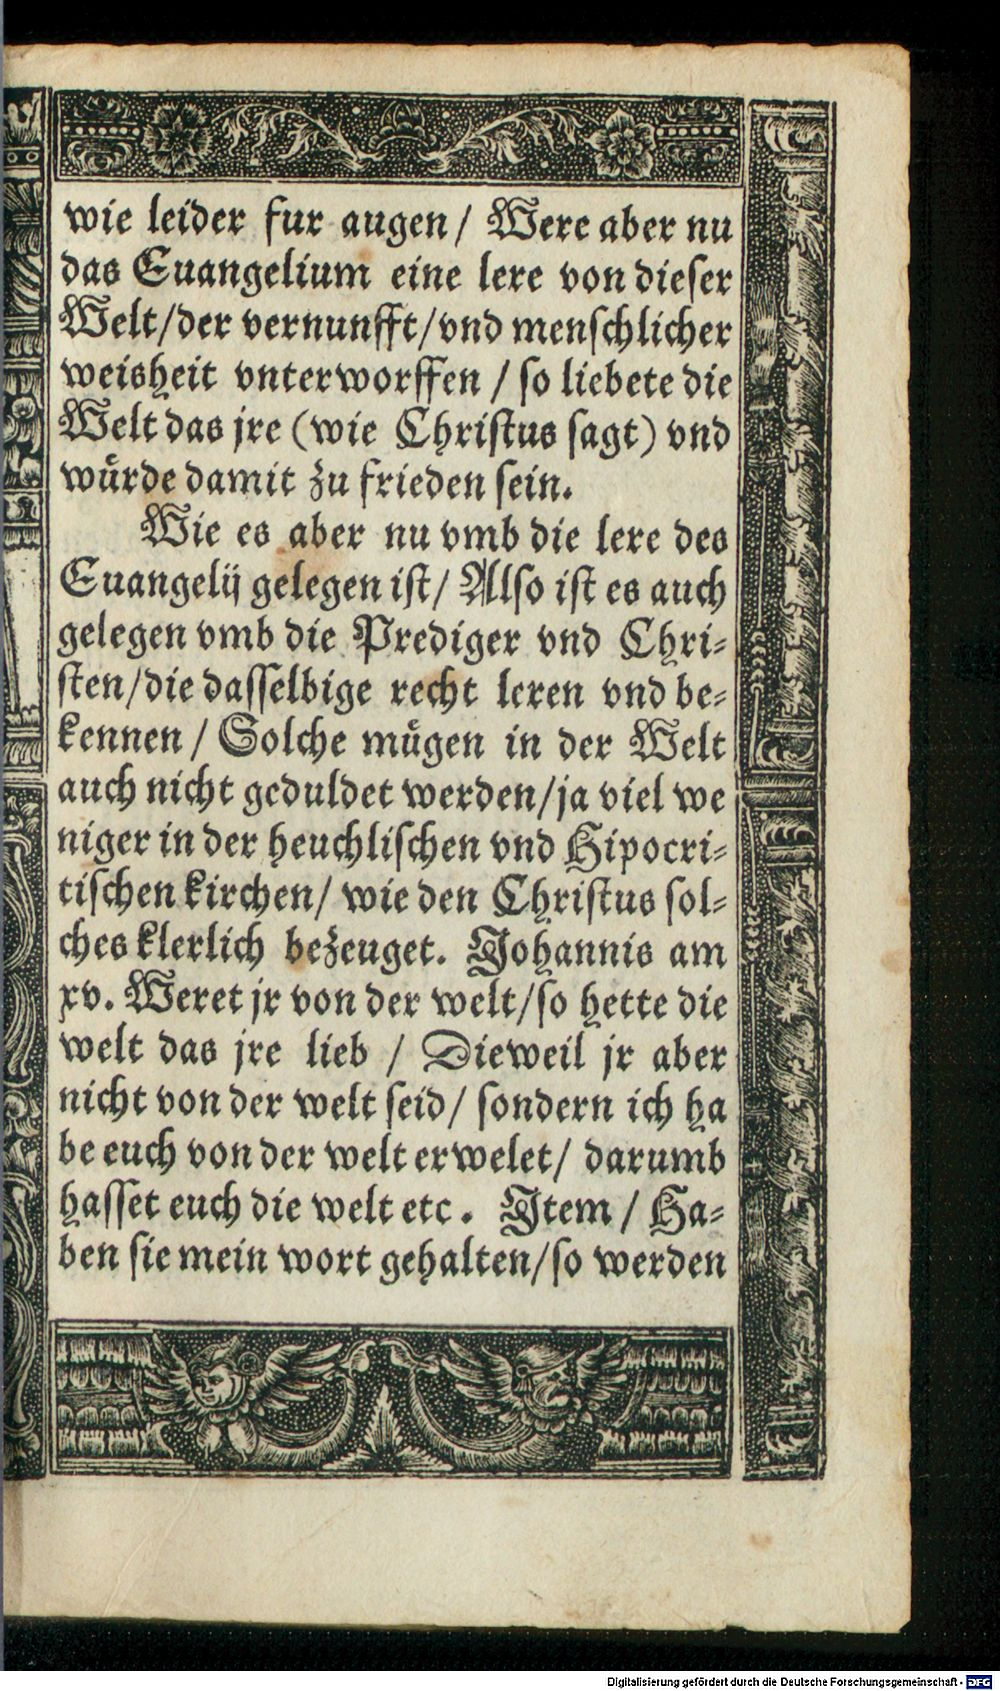 wie leider fur augen / Were aber nu
das Euangelium eine lere von dieser
Welt/der vernunfft/vnd menschlicher
weisheit vnterworffen / so liebete die
Welt das jre (wie Christus sagt) vnd
wůrde damit zu frieden sein.
Wie es aber nu vmb die lere des
Euangelij gelegen ist/ Also ist es auch
gelegen vmb die Prediger vnd Chri-
sten/die dasselbige recht leren vnd be-
kennen / Solche můgen in der Welt
auch nicht geduldet werden/ja viel we
niger in der heuchlischen vnd Hipocri-
tischen kirchen/ wie den Christus sol-
ches klerlich bezeuget. Johannis am
xv. Weret jr von der welt/so hette die
welt das jre lieb / Dieweil jr aber
nicht von der welt seid/ sondern ich ha
be euch von der welt erwelet/ darumb
hasset euch die welt etc . Item / Ha-
ben sie mein wort gehalten/so werden
Digitalisierung gefördert durch die Deutsche Forschungsgemeinschaft - DFG